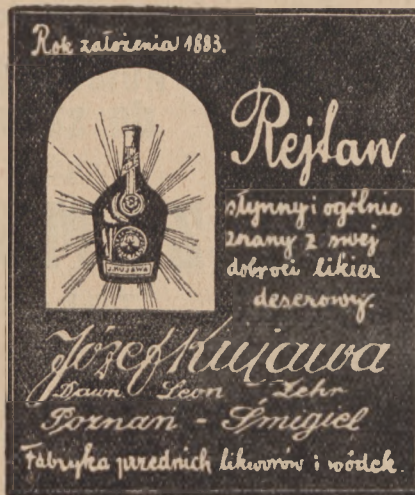 Rok założenia 1893.
J. KUJAWA
Rejtan
słynny i ogólnie
znany z swej
dobroci likier
deserowy.
Józef Kujawa
Dawn. Leon Zehr
Poznań - Śmigiel
Fabryka przednich likworów i wódek.